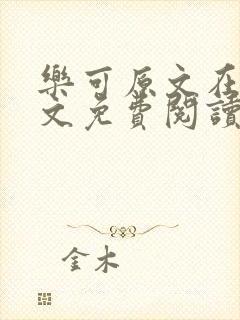 樂可原文在
文免費閱讀
金木